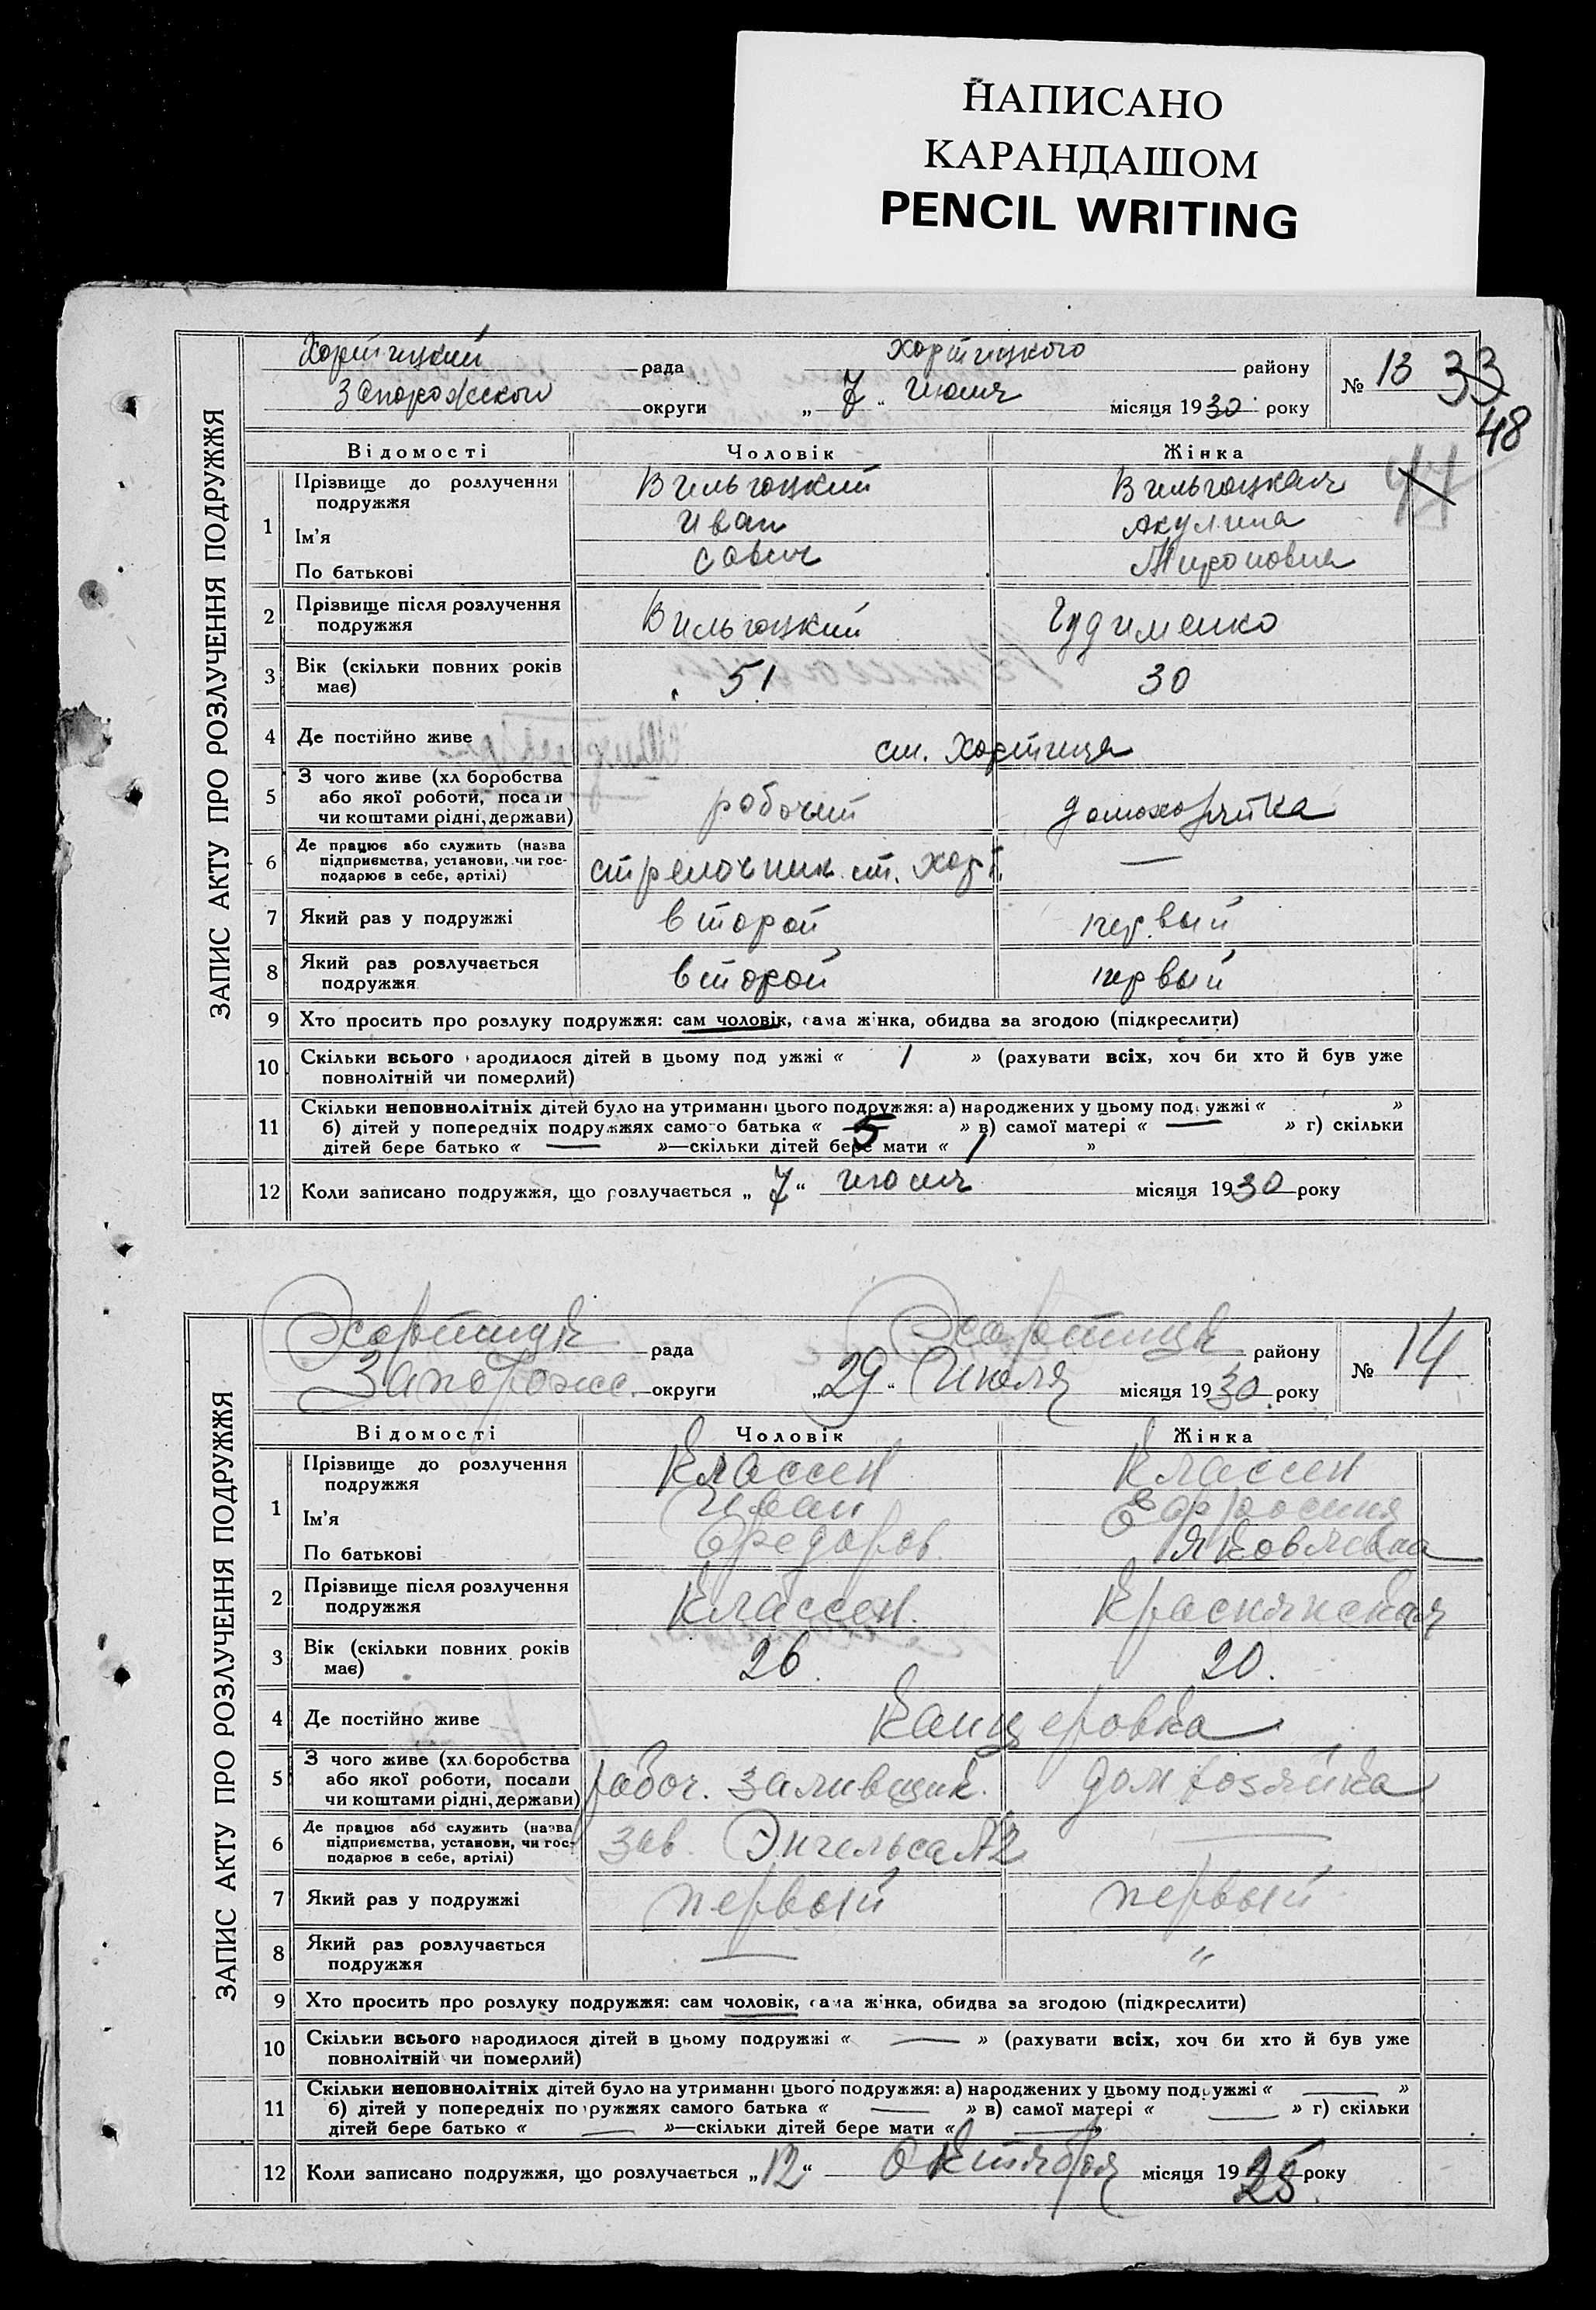 НАПИСАНО
КАРАНДАШОМ
PENCIL WRITING
ЗАПИС АКТУ ПРО РОЗЛУЧЕННЯ ПОДРУЖЖЯ
Хортицкий рада Хортицкого району
Запорожского округи „ 7 “ июля місяця 1930 року № 13 33
48
Відомості Чоловік Жінка
1 Прізвище до розлучення подружжя Вильгоцкий Вильгоцкая
Ім'я Иван Акулина
По батькові Савич Мироновна
2 Прізвище після розлучення подружжя Вильгоцкий Гудименко
3 Вік (скільки повних років має) 51 30
4 Де постійно живе ст. Хортица
5 З чого живе (хл боробства або якої роботи, посади чи коштами рідні, держави) рабочий домохозяйка
6 Де працює або служить (назва підприємства, установи, чи господарює в себе, артілі) стрелочник ст. Хорт. —
7 Який раз у подружжі второй первый
8 Який раз розлучається подружжя второй первый
9 Хто просить про розлуку подружжя: сам чоловік, сама жінка, обидва за згодою (підкреслити)
10 Скільки всього народилося дітей в цьому подружжі « 1 » (рахувати всіх, хоч би хто й був уже
повнолітній чи померлий)
11 Скільки неповнолітніх дітей було на утриманні цього подружжя: а) народжених у цьому подружжі « »
б) дітей у попередніх подружжях самого батька « 5 » в) самої матері « — » г) скільки
дітей бере батько « — »—скільки дітей бере мати « 1 »
12 Коли записано подружжя, що розлучається „ 7 “ июля місяця 1930 року
ЗАПИС АКТУ ПРО РОЗЛУЧЕННЯ ПОДРУЖЖЯ
Хортицк рада Хортицк району
Запорожс. округи „ 29 “ Июля місяця 1930 року № 14
Відомості Чоловік Жінка
1 Прізвище до розлучення подружжя Классен Классен
Ім'я Иван Ефросиния
По батькові Федоров. Яковлевна
2 Прізвище після розлучення подружжя Классен. Краснянская
3 Вік (скільки повних років має) 26. 20.
4 Де постійно живе Канцеровка
5 З чого живе (хл.боробства або якої роботи, посади чи коштами рідні, держави) рабоч. заливщик. дом хозяйка
6 Де працює або служить (назва підприємства, установи, чи господарює в себе, артілі) зав. Энгельса №2 —
7 Який раз у подружжі первый первый
8 Який раз розлучається подружжя — "
9 Хто просить про розлуку подружжя: сам чоловік, сама жінка, обидва за згодою (підкреслити)
10 Скільки всього народилося дітей в цьому подружжі « — » (рахувати всіх, хоч би хто й був уже
повнолітній чи померлий)
11 Скільки неповнолітніх дітей було на утриманні цього подружжя: а) народжених у цьому подружжі « — »
б) дітей у попередніх подружжях самого батька « — » в) самої матері « — » г) скільки
дітей бере батько « — »—скільки дітей бере мати « —
12 Коли записано подружжя, що розлучається „ 12 “ Октября місяця 1925 року